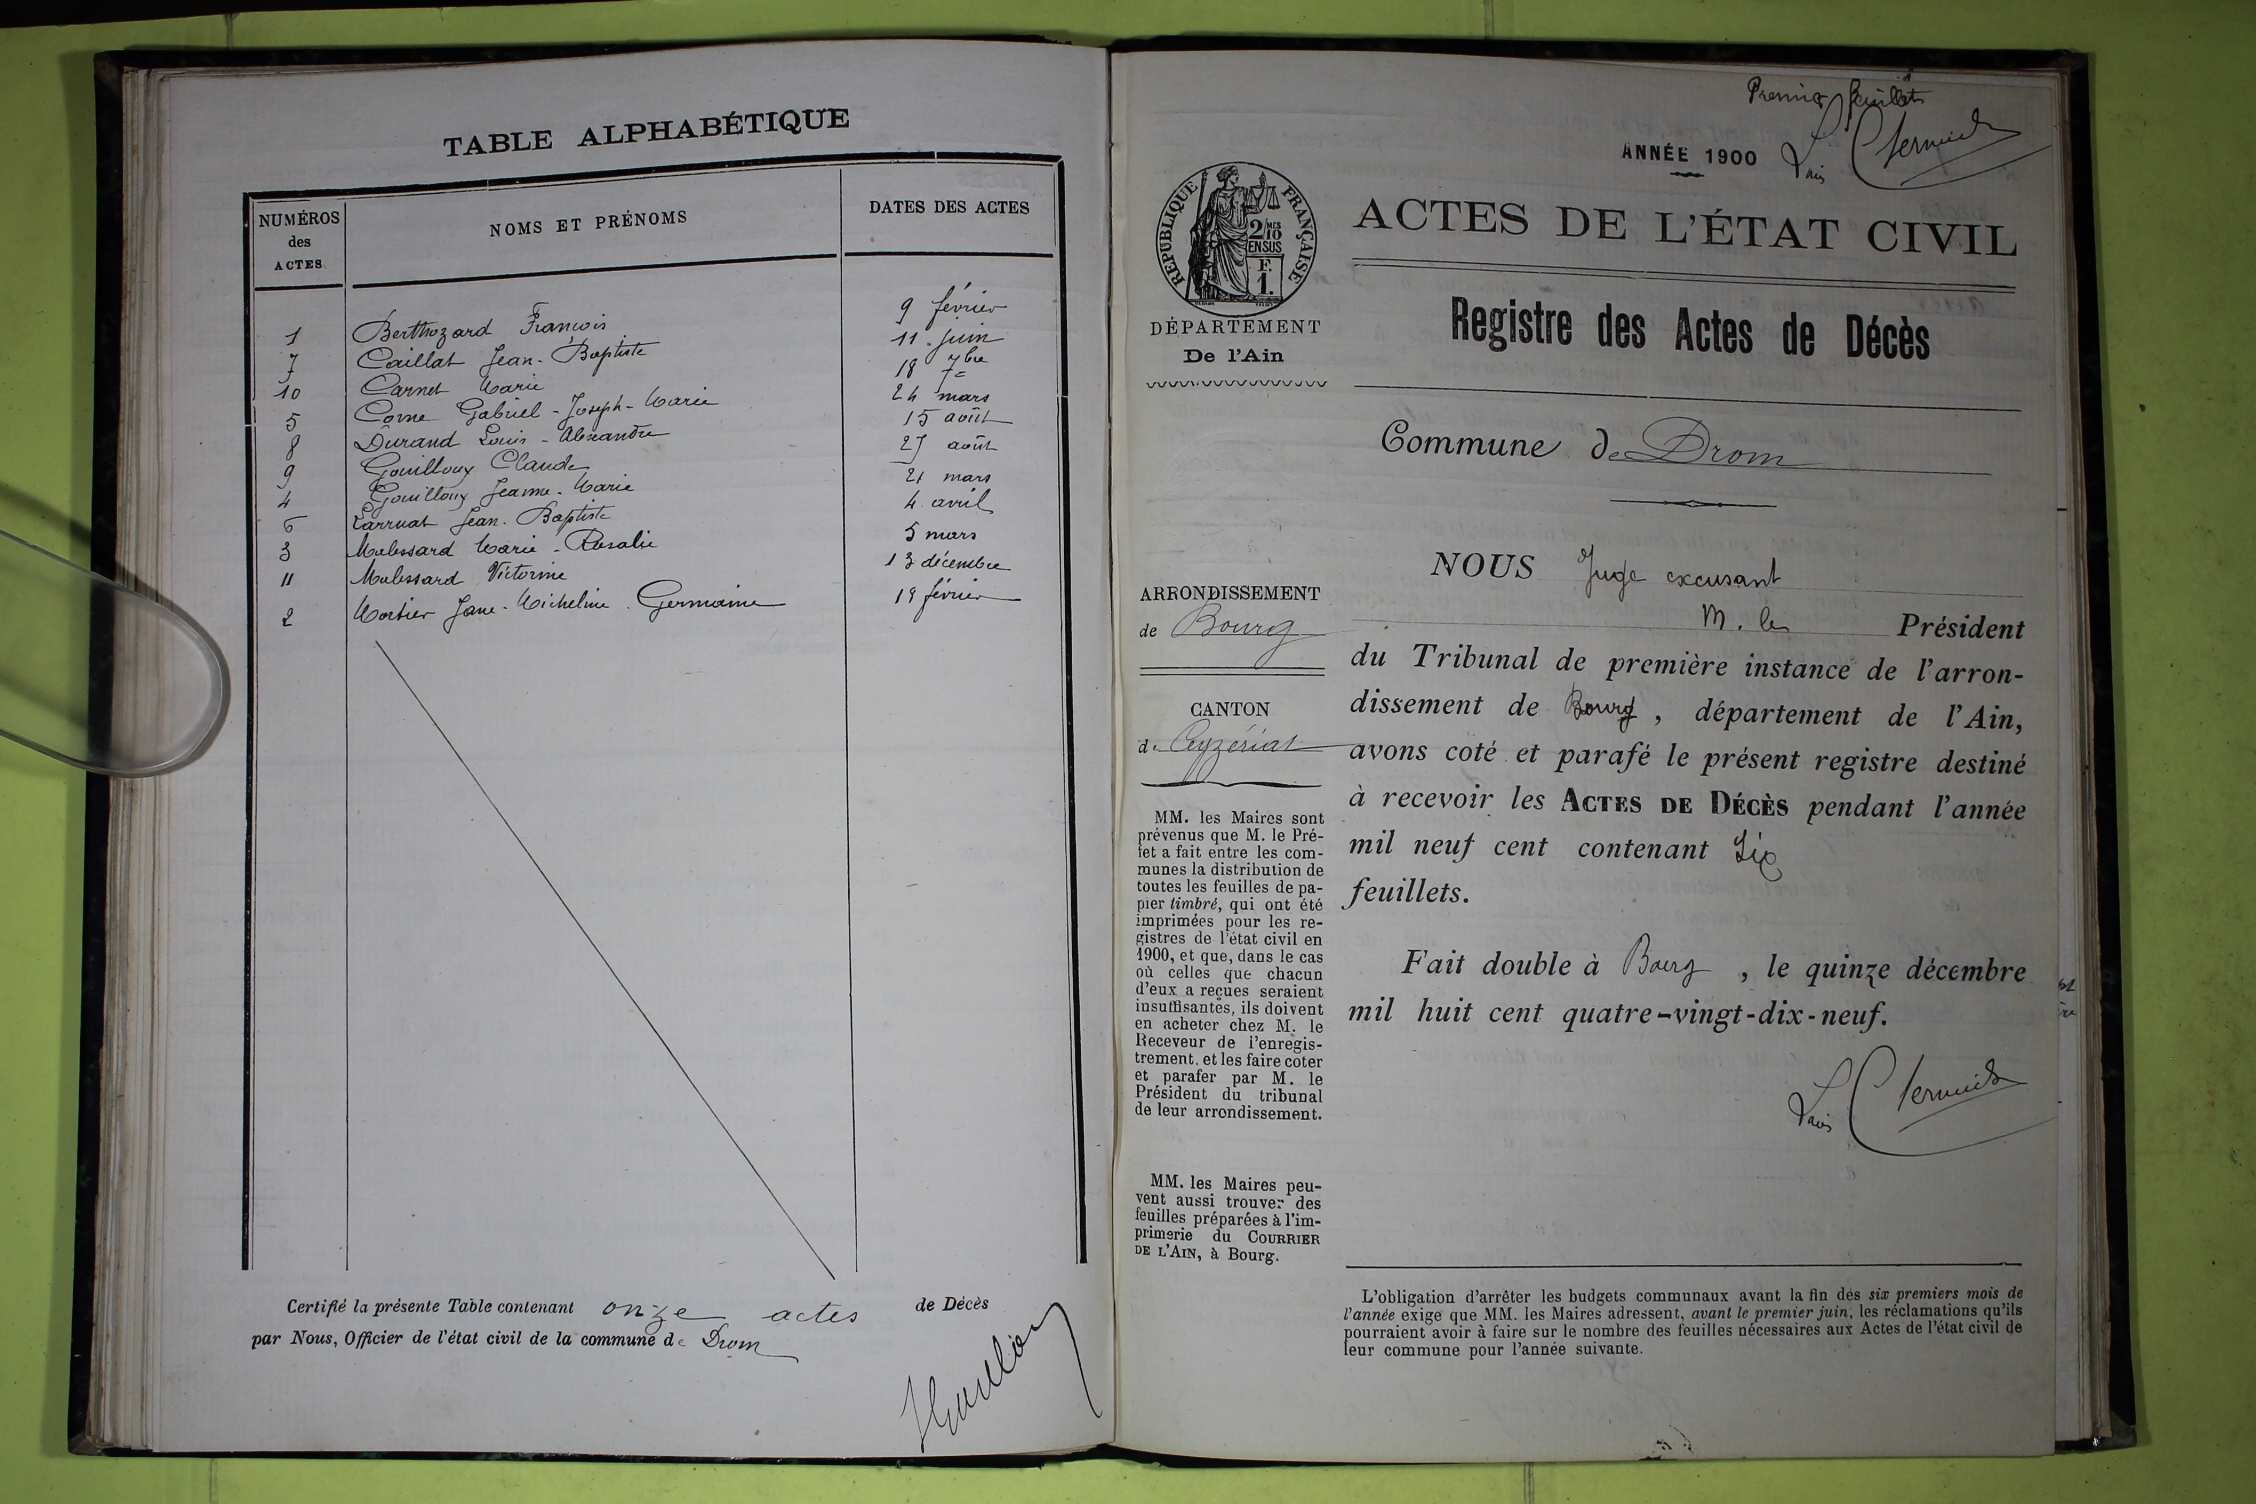 TABLE ALPHABÉTIQUE
NUMÉROS des ACTES
NOMS ET PRÉNOMS
DATES DES ACTES
1 Berthozard François 9 février
7 Caillat Jean-Baptiste 11 juin
10 Carnet Marie 18 7bre
5 Come Gabriel-Joseph-Marie 24 mars
8 Durand Louis-Alexandre 15 août
9 Gouilloux Claude 27 août
4 Gouilloux Jeanne-Marie 21 mars
6 Larruat Jean-Baptiste 4 avril
3 Malessard Marie-Rosalie 5 mars
11 Malessard Victorine 13 décembre
2 Mortier Jane-Micheline Germaine 19 février
Certifié la présente Table contenant onze actes de Décès
par Nous, Officier de l'état civil de la commune de Drom
Premier feuillet
ANNÉE 1900
RÉPUBLIQUE FRANÇAISE
2/10
MES
EN SUS
F.
1.
DÉPARTEMENT
De l'Ain
ACTES DE L'ÉTAT CIVIL
Registre des Actes de Décès
Commune de Drom
ARRONDISSEMENT
de Bourg
CANTON
de Ceyzériat
MM. les Maires sont
prévenus que M. le Pré-
fet a fait entre les com-
munes la distribution de
toutes les feuilles de pa-
pier timbré, qui ont été
imprimées pour les re-
gistres de l'état civil en
1900, et que, dans le cas
où celles que chacun
d'eux a reçues seraient
insuffisantes, ils doivent
en acheter chez M. le
Receveur de l'enregis-
trement, et les faire coter
et parafer par M. le
Président du tribunal
de leur arrondissement.
MM. les Maires peu-
vent aussi trouver des
feuilles préparées à l'im-
primerie du COURRIER
DE L'AIN, à Bourg.
NOUS Juge excusant
M. le Président
du Tribunal de première instance de l'arron-
dissement de Bourg, département de l'Ain,
avons coté et parafé le présent registre destiné
à recevoir les ACTES DE DÉCÈS pendant l'année
mil neuf cent contenant Six
feuillets.
Fait double à Bourg, le quinze décembre
mil huit cent quatre-vingt-dix-neuf.
L'obligation d'arrêter les budgets communaux avant la fin des six premiers mois de
l'année exige que MM. les Maires adressent, avant le premier juin, les réclamations qu'ils
pourraient avoir à faire sur le nombre des feuilles nécessaires aux Actes de l'état civil de
leur commune pour l'année suivante.